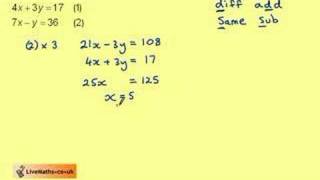 4x + 3y = 17 (1)
7x - y = 36 (2)
diff add
Same Sub
(2) x 3 21x - 3y = 108
4x + 3y = 17
25x = 125
x = 5
LiveMaths.co.uk